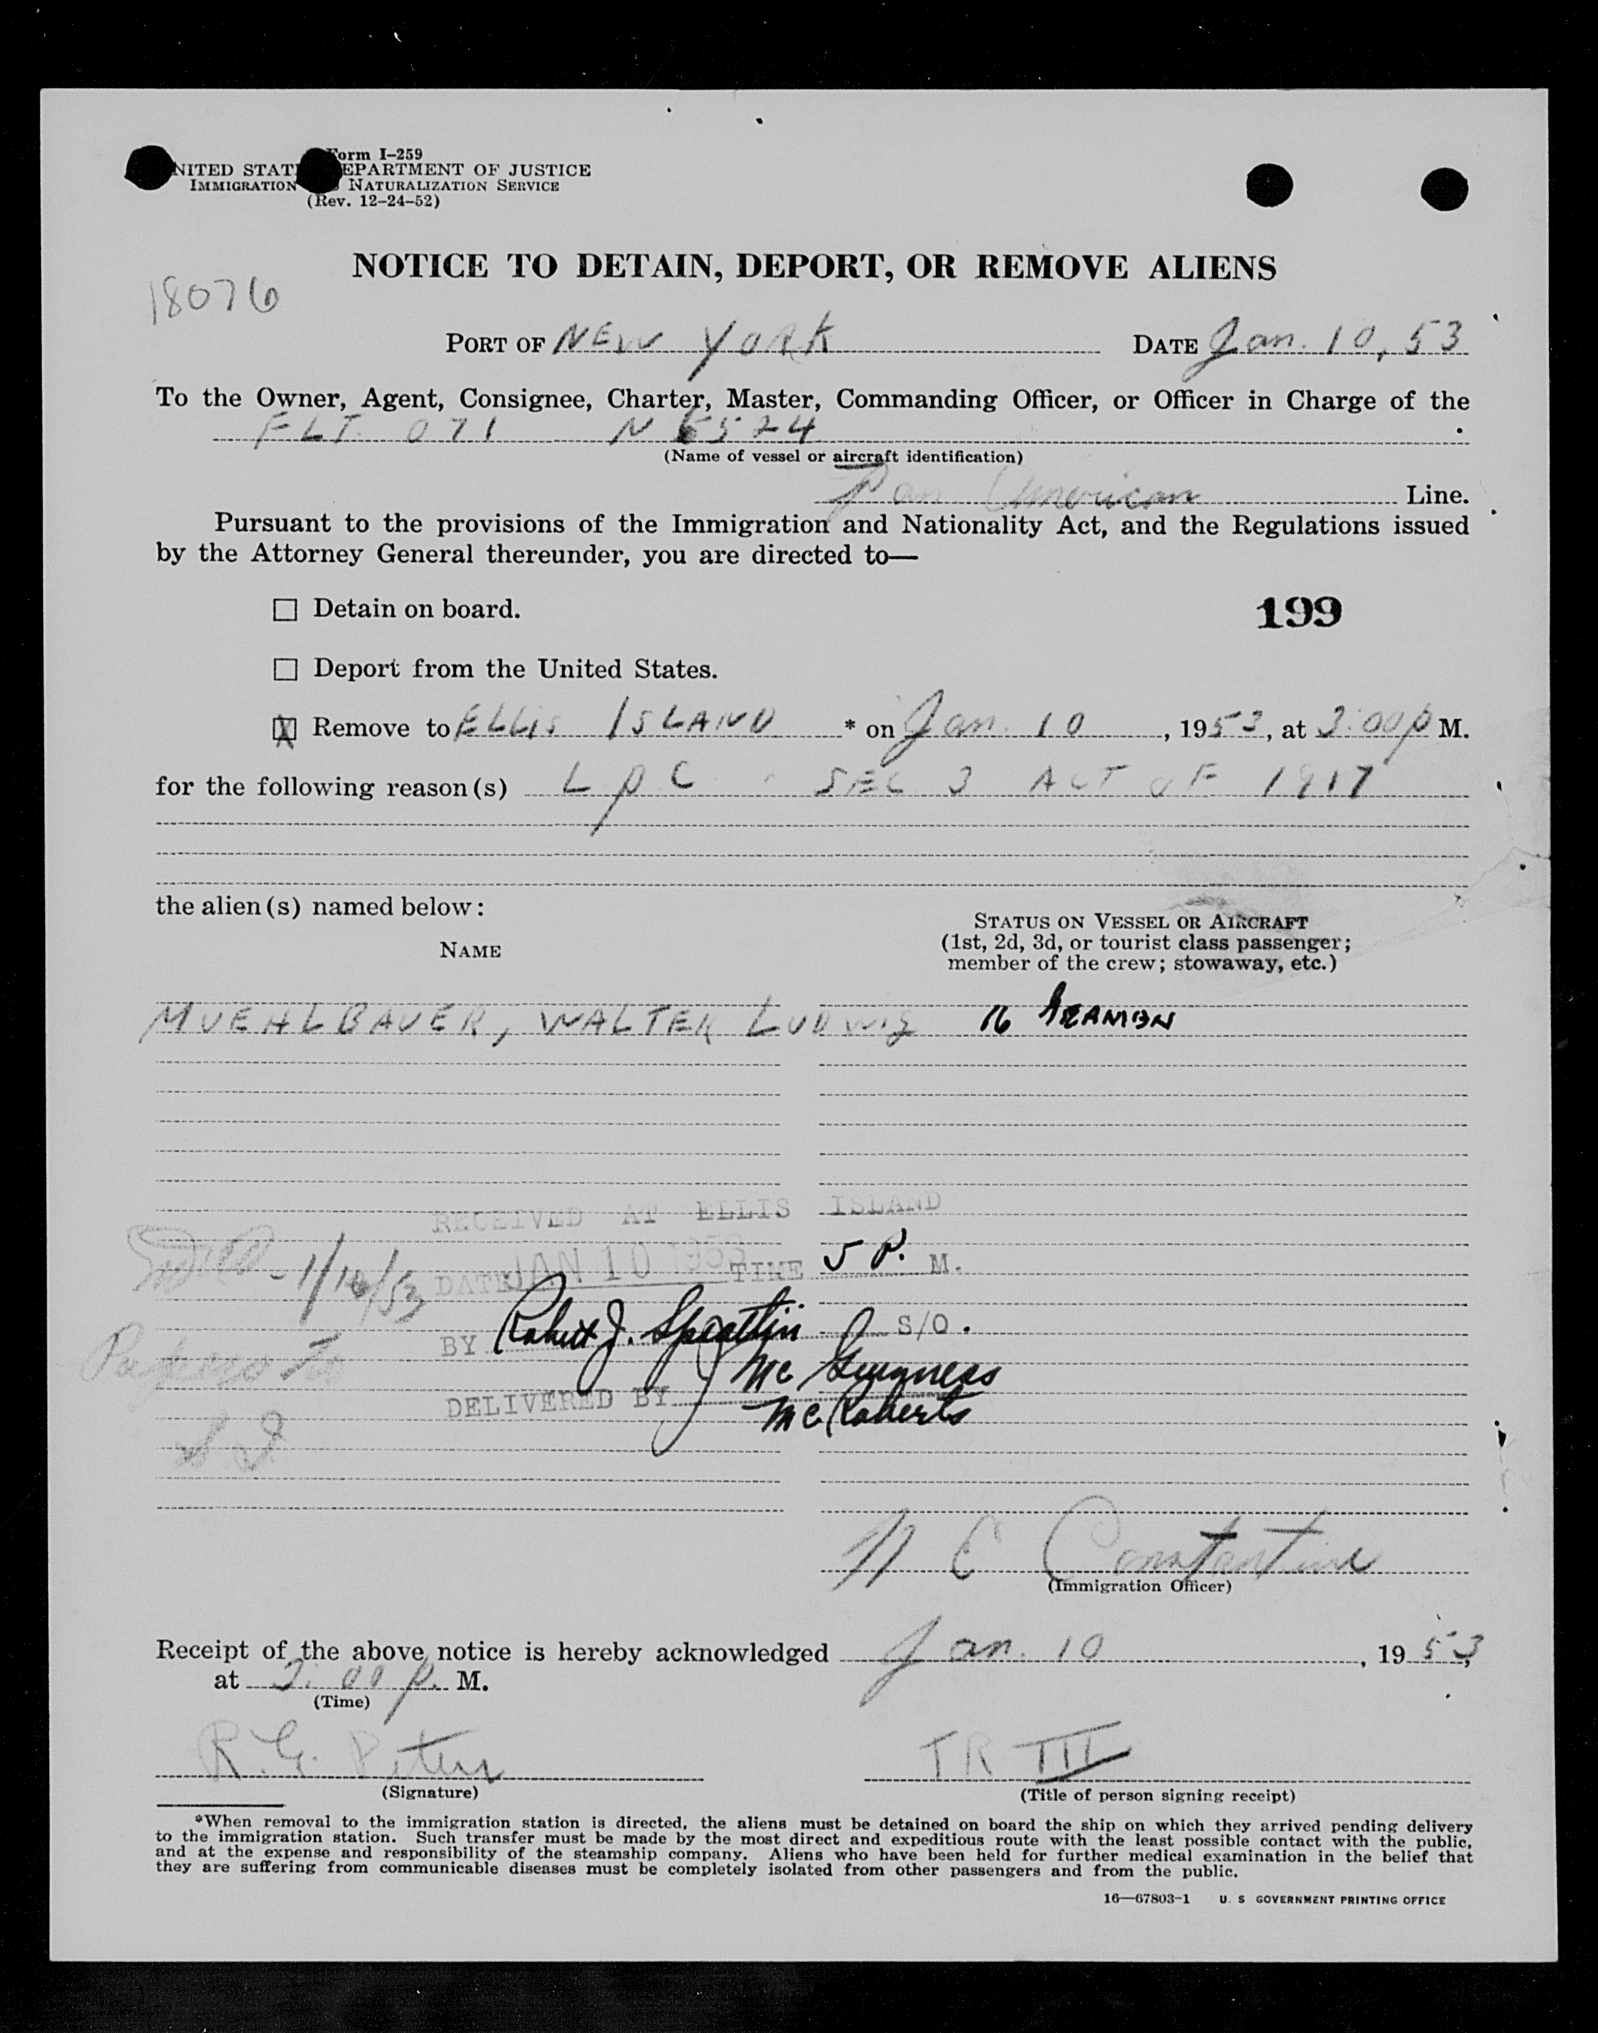 Form I-259
UNITED STATES DEPARTMENT OF JUSTICE
IMMIGRATION NATURALIZATION SERVICE
(Rev. 12-24-52)
NOTICE TO DETAIN, DEPORT, OR REMOVE ALIENS
18076
PORT OF NEW YORK DATE Jan. 10, 53
To the Owner, Agent, Consignee, Charter, Master, Commanding Officer, or Officer in Charge of the
FLT. 071 N 6524
(Name of vessel or aircraft identification)
Pan American Line.
Pursuant to the provisions of the Immigration and Nationality Act, and the Regulations issued
by the Attorney General thereunder, you are directed to—
☐ Detain on board.
199
☐ Deport from the United States.
☒ Remove to ELLIS ISLAND * on Jan. 10, 1953, at 3:00 p M.
for the following reason(s) L p C . SEC 3 ACT OF 1917
the alien(s) named below:
NAME
STATUS ON VESSEL OR AIRCRAFT
(1st, 2d, 3d, or tourist class passenger;
member of the crew; stowaway, etc.)
MUEHLBAUER, WALTER LUDWIG
RECEIVED AT ELLIS ISLAND
DATE JAN 10 1953 TIME 5 P. M.
1/16/53
BY Robert J. S/O.
Mc Guigness
Papers to
DELIVERED BY
Mc Roberts
N E Constantine
(Immigration Officer)
Receipt of the above notice is hereby acknowledged Jan. 10, 1953,
at 3:00 p. M.
(Time)
R. G. Peters TR III
(Signature) (Title of person signing receipt)
*When removal to the immigration station is directed, the aliens must be detained on board the ship on which they arrived pending delivery
to the immigration station. Such transfer must be made by the most direct and expeditious route with the least possible contact with the public,
and at the expense and responsibility of the steamship company. Aliens who have been held for further medical examination in the belief that
they are suffering from communicable diseases must be completely isolated from other passengers and from the public.
16—67803-1 U. S GOVERNMENT PRINTING OFFICE